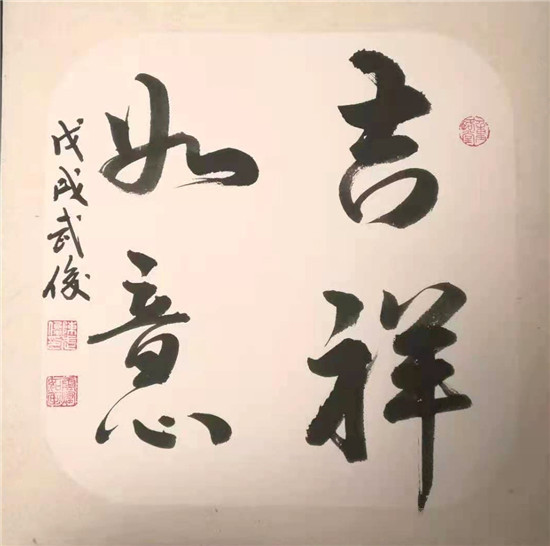 吉祥
如意
戊戌武俊